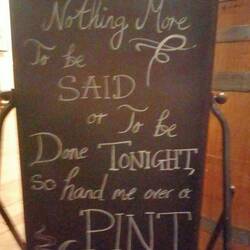 Nothing More
To be
SAID
or To be
Done TONIGHT,
so hand me over a
PINT